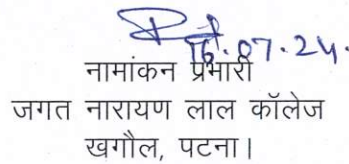 16.07.24.
नामांकन प्रभारी
जगत नारायण लाल कॉलेज
खगौल, पटना।